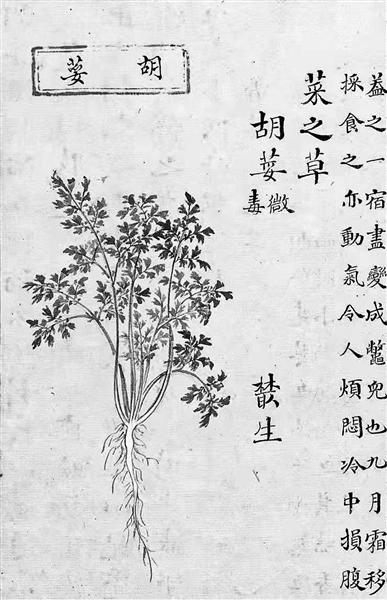 盖之一宿盡變成鼈兒也九月霜移
採食之亦動氣令人煩悶冷中損腹
菜之草
胡荽
微
毒
藂生
胡荽